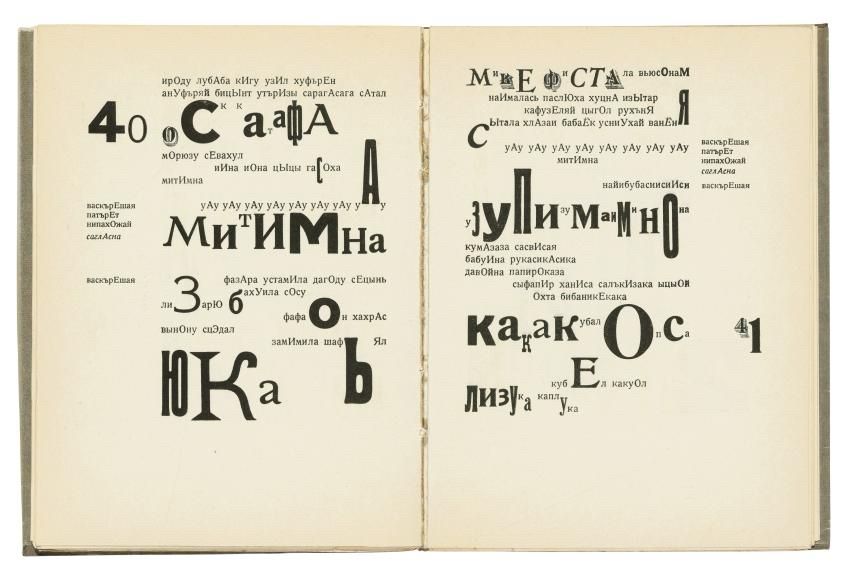 ирОду лубАба кИгу узИл хуфърЕн
анУфъряй бицЫнт утърИзы сарагАсага сАтал
40 фСккатафА
мОрюзу сЕвахул
иИна иОна цЫцы гасОха
митИмна А
васкърЕшая уАу уАу уАу уАу уАу уАу уАу уАу
патърЕт
нипахОжай
саглАсна
МитИМна
васкърЕшая фазАра устамИла дагОду сЕцынь
лиЗарЮ бахУила сОсу
фафаОн хахрАс
вынОну сцЭдал
замИмила шафЬЯл
ЮКа
МиФИСТАла вьюсОнаМ
наИмалась паслЮха хуцнА изЫтар
кафузЕляй цыгОл рухънЯ
сЫтала хлАзаи бабаЁк усниУхай ванЁнЯ
уАу уАу уАу уАу уАу уАу уАу уАу
митИмна
васкърЕшая
патърЕт
нипахОжай
саглАсна
найибубасиисиИси васкърЕшая
узуПизумаиМинОна
кумАзаза сасвИсая
бабуИна рукасикАсика
давОйна папирОказа
сыфапИр ханИса салъкИзака ыцыОй
Охта бибаникЕкака
какакубалОпса 41
кубЕл какуОл
лизука каплука